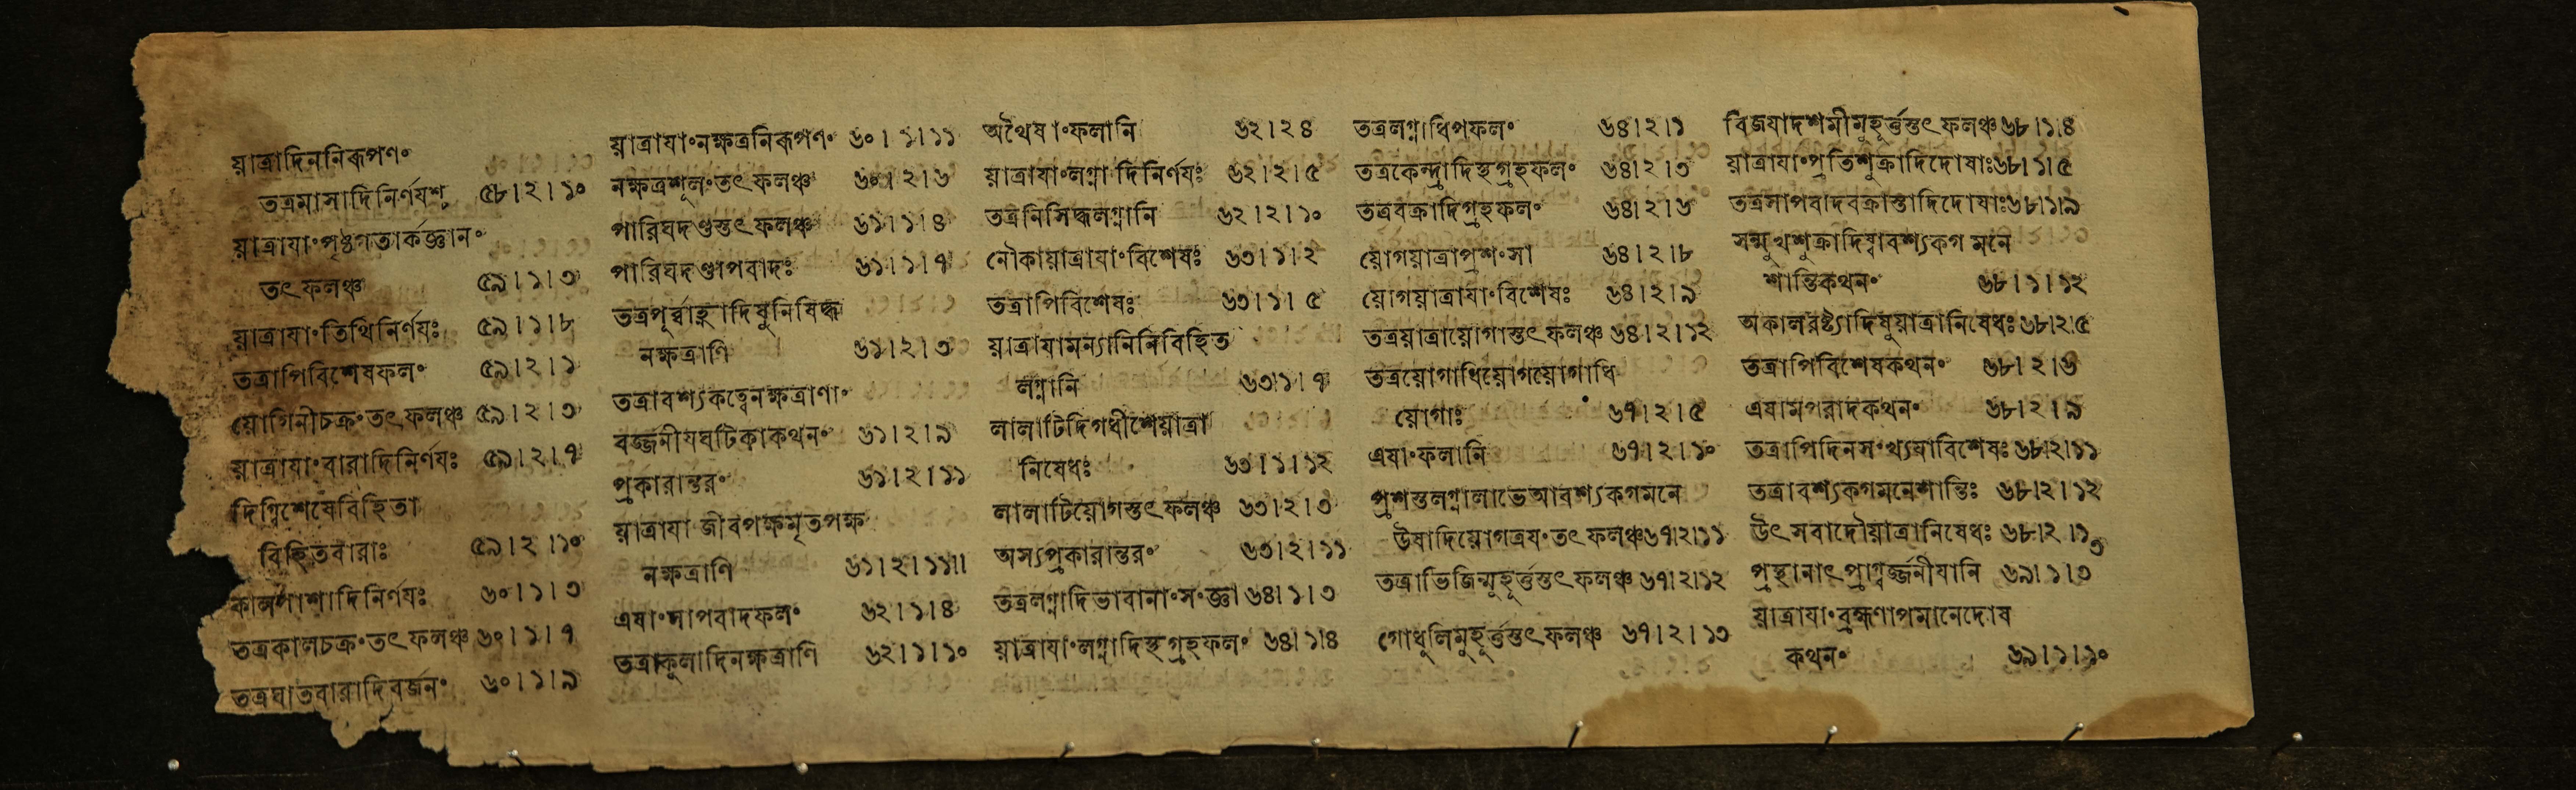 যাত্রাদিননিরূপণং
তত্রমাসাদিনির্ণযশ্ ৫৮।২।১০
যাত্রাযাংপৃষ্ঠগতার্কজ্ঞানং
তৎফলঞ্চ ৫৯।১।৩
যাত্রাযাংতিথিনির্ণযঃ ৫৯।১।৮
তত্রাপিবিশেষফলং ৫৯।২।১
যোগিনীচক্রংতৎফলঞ্চ ৫৯।২।৩
যাত্রাযাংবারাদিনির্ণযঃ ৫৯।২।৭
দিগ্বিশেষেবিহিতা
বিহিতবারাঃ ৫৯।২।১০
কালপাশাদিনির্ণযঃ ৬০।১।৩
তত্রকালচক্রংতৎফলঞ্চ ৬০।১।৭
তত্রঘাতবারাদিবর্জনং ৬০।১।৯
যাত্রাযাংনক্ষত্রনিরূপণং ৬০।১।১১
নক্ষত্রশূলংতৎফলঞ্চ ৬০।২।৬
পারিঘদণ্ডস্তৎফলঞ্চ ৬১।১।৪
পারিঘদণ্ডাপবাদঃ ৬১।১।৭
তত্রপূর্ব্বাহ্ণাদিষুনিষিদ্ধ
নক্ষত্রাণি ৬১।২।৩
তত্রাবশ্যকত্বেনক্ষত্রাণাং
বর্জ্জনীযঘটিকাকথনং ৬১।২।৯
প্রকারান্তরং ৬১।২।১১
যাত্রাযাং জীবপক্ষমৃতপক্ষ
নক্ষত্রাণি ৬১।২।১১॥
এষাংসাপবাদফলং ৬২।১।৪
তত্রাকুলাদিনক্ষত্রাণি ৬২।১।১০
অথৈষাংফলানি ৬২।২৪
যাত্রাযাংলগ্নাদিনির্ণযঃ ৬২।২।৫
তত্রনিসিদ্ধলগ্নানি ৬২।২।১০
নৌকাযাত্রাযাংবিশেষঃ ৬৩।১।২
তত্রাপিবিশেষঃ ৬৩।১।৫
যাত্রাযামন্যানিনিবিহিত
লগ্নানি ৬৩।১।৭
লালাটিদিগধীশেযাত্রা
নিষেধঃ ৬৩।১।১২
লালাটিযোগস্তৎফলঞ্চ ৬৩।২।৩
অস্যপ্রকারান্তরং ৬৩।২।১১
তত্রলগ্নাদিভাবানাংসংজ্ঞা ৬৪।১।৩
যাত্রাযাংলগ্নাদিস্থগ্রহফলং ৬৪।১।৪
তত্রলগ্নাধিপফলং ৬৪।২।১
তত্রকেন্দ্রাদিস্থগ্রহফলং ৬৪।২।৩
তত্রবক্রাদিগ্রহফলং ৬৪।২।৬
যোগযাত্রাপ্রশংসা ৬৪।২।৮
যোগযাত্রাযাংবিশেষঃ ৬৪।২।৯
তত্রযাত্রাযোগাস্তৎফলঞ্চ ৬৪।২।১২
তত্রযোগাধিযোগযোগাধি
যোগাঃ ৬৭।২।৫
এষাংফলানি ৬৭।২।১০
প্রশস্তলগ্নালাভেআবশ্যকগমনে
উষাদিযোগত্রযংতৎফলঞ্চ ৬৭।২।১১
তত্রাভিজিন্মুহূর্ত্তস্তৎফলঞ্চ ৬৭।২।১২
গোধূলিমুহূর্ত্তস্তৎফলঞ্চ ৬৭।২।১৩
বিজযাদশমীমুহূর্ত্তস্তৎফলঞ্চ ৬৮।১।৪
যাত্রাযাংপ্রতিশুক্রাদিদোষাঃ ৬৮।১।৫
তত্রসাপবাদবক্রাস্তাদিদোষাঃ ৬৮।১।৯
সন্মুখশুক্রাদিষ্বাবশ্যকগমনে
শান্তিকথনং ৬৮।১।১২
অকালবৃষ্ট্যাদিষুযাত্রানিষেধঃ ৬৮।২।৫
তত্রাপিবিশেষকথনং ৬৮।২।৬
এষামপবাদকথনং ৬৮।২।৯
তত্রাপিদিনসংখ্যযাবিশেষঃ ৬৮।২।১১
তত্রাবশ্যকগমনেশান্তিঃ ৬৮।২।১২
উৎসবাদৌযাত্রানিষেধঃ ৬৮।২।১৩
প্রস্থানাৎপ্রাগ্বর্জ্জনীযানি ৬৯।১।৩
যাত্রাযাংব্রহ্মণাপমানেদোষ
কথনং ৬৯।১।১০